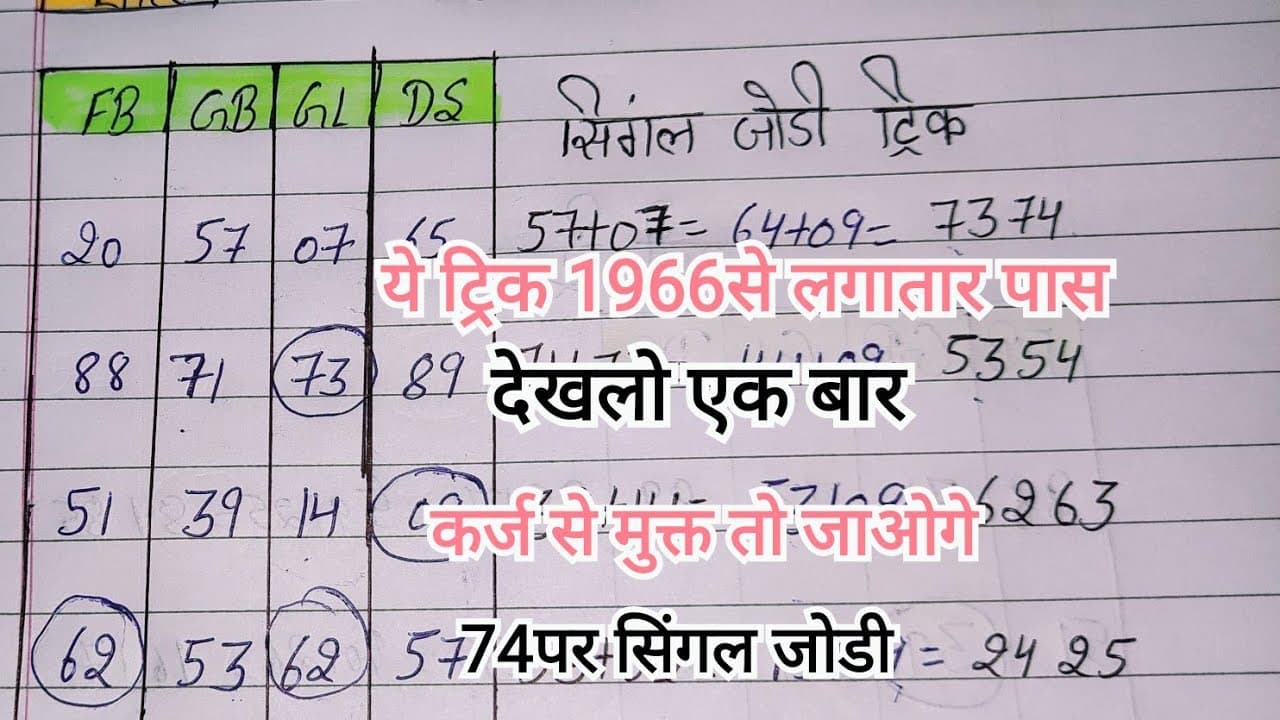 FB GB GL DS सिंगल जोडी ट्रिक
20 57 07 65 57+07= 64+09= 73 74
ये ट्रिक 1966से लगातार पास
88 71 73 89 53 54
देखलो एक बार
51 39 14 62 63
कर्ज से मुक्त तो जाओगे
62 53 62 57 = 24 25
74पर सिंगल जोडी